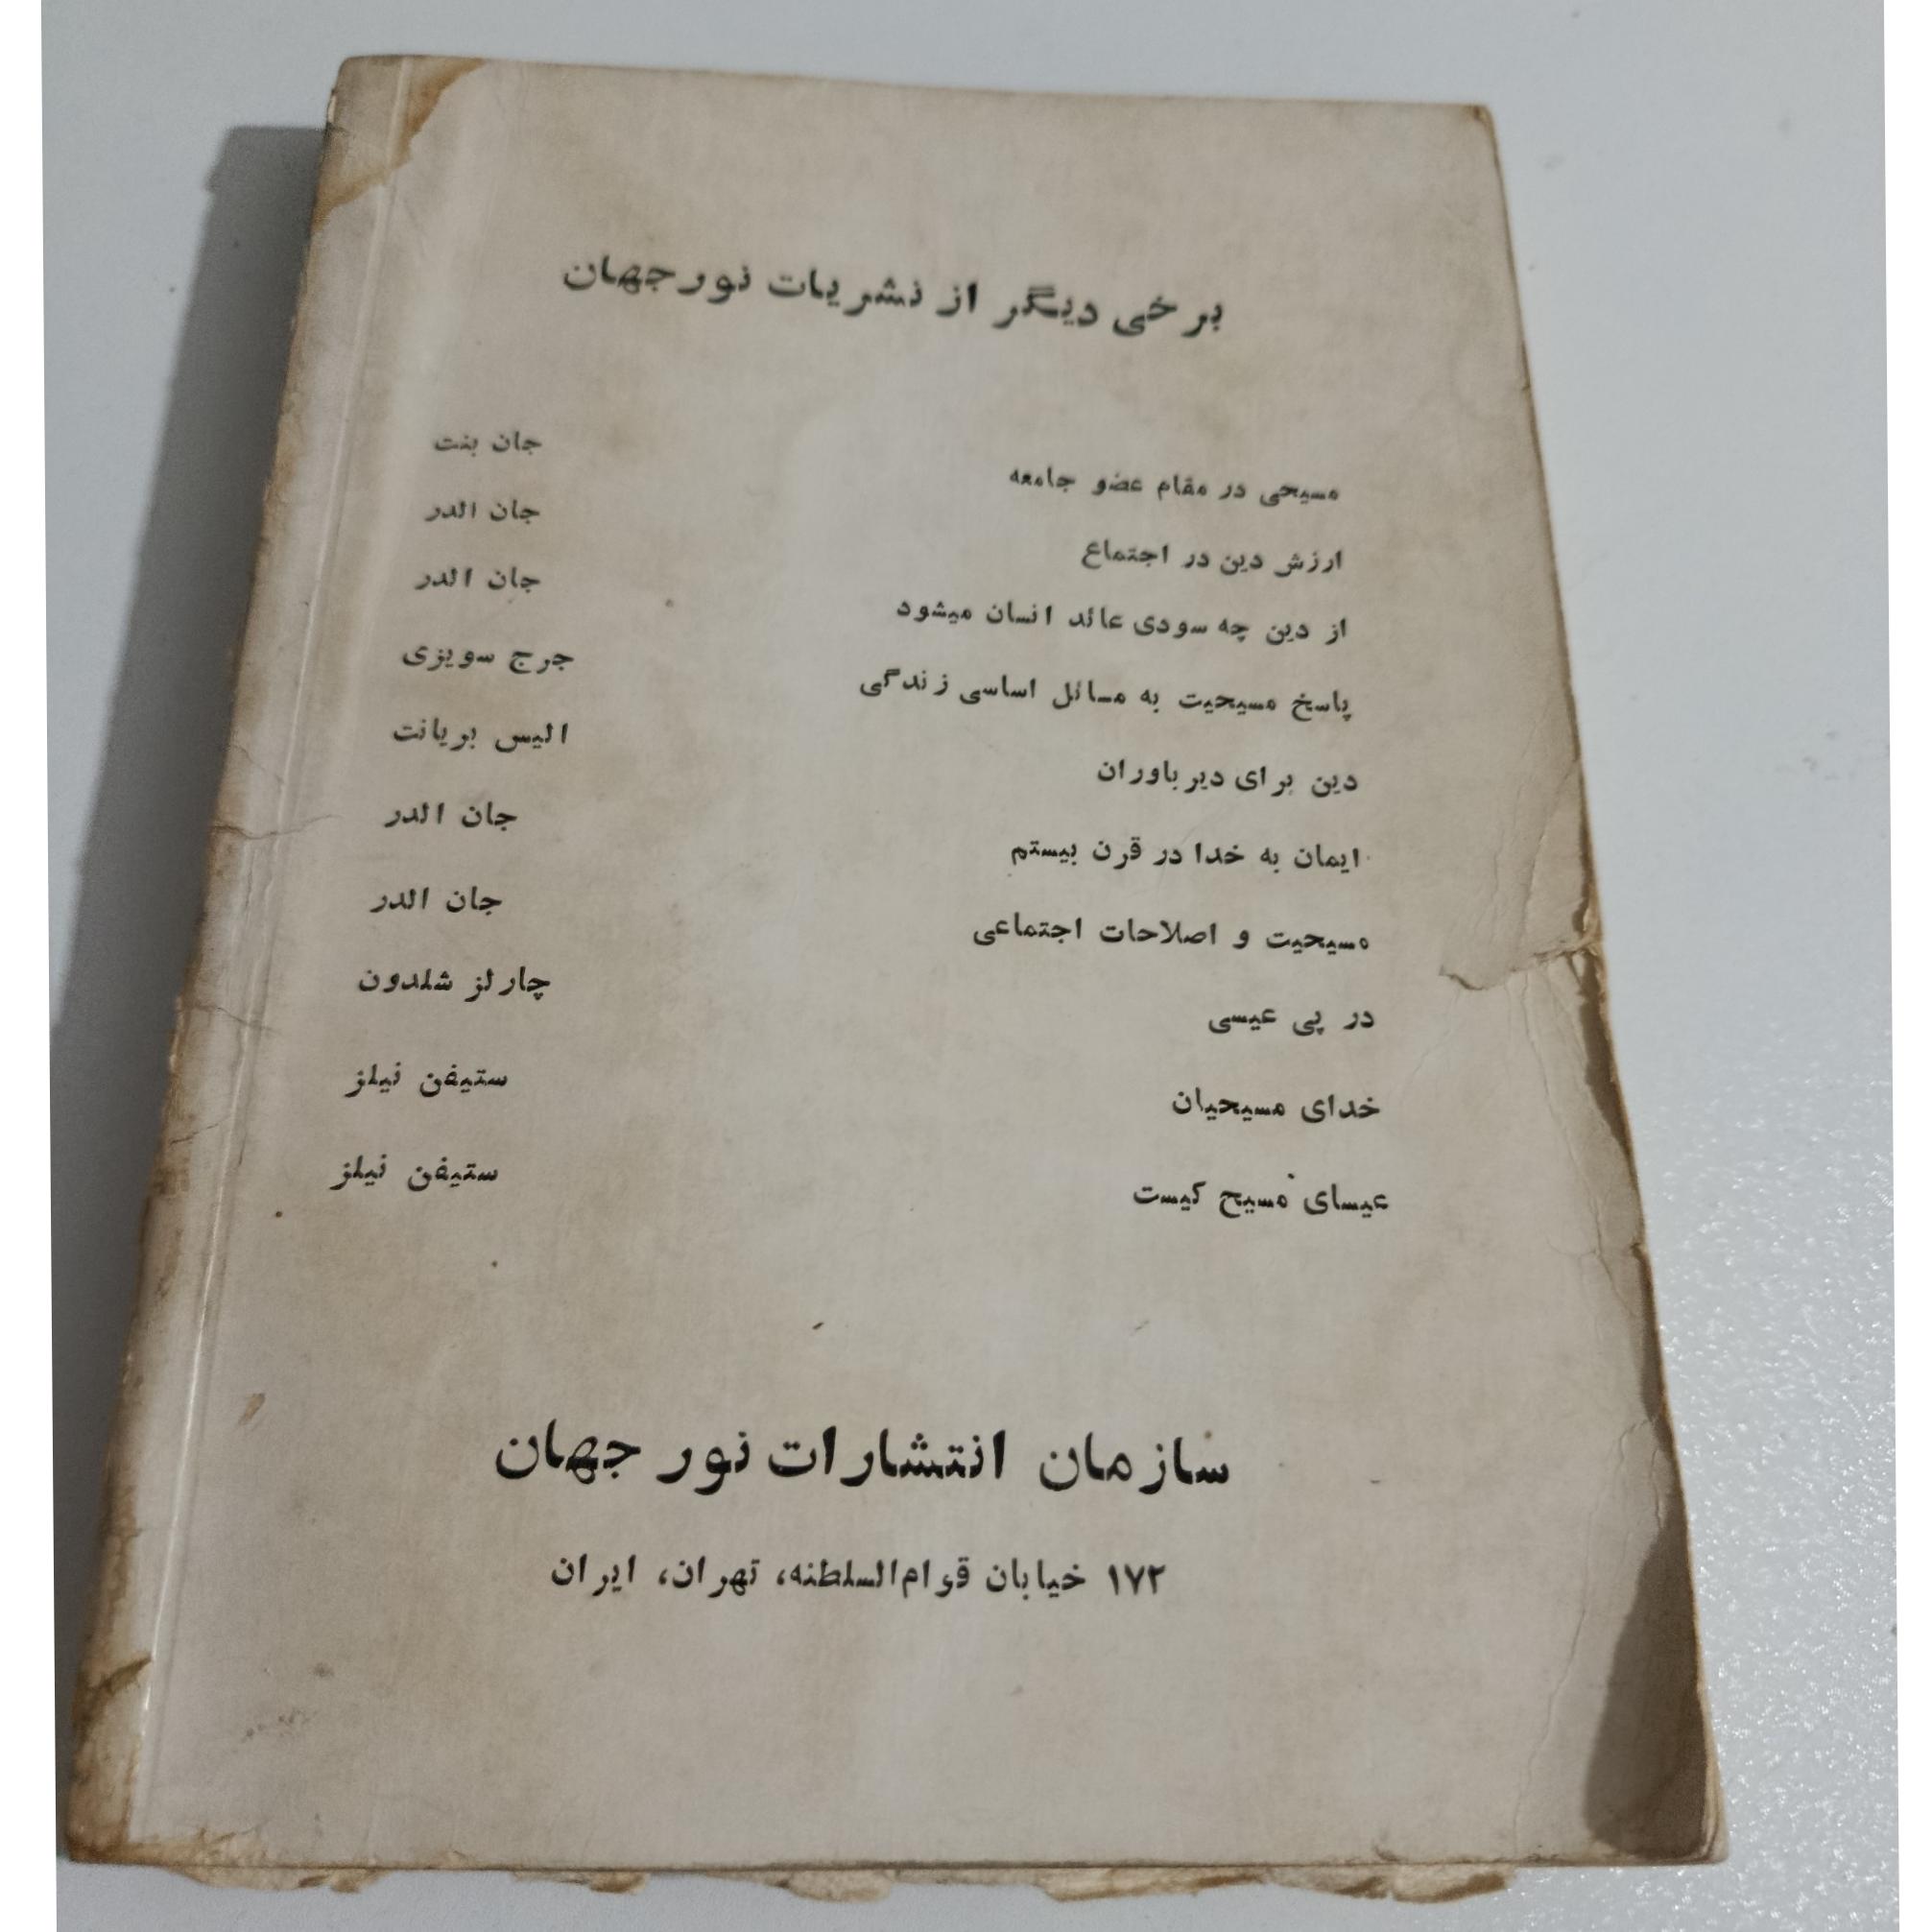 برخی دیگر از نشریات نور جهان
مسیحی در مقام عضو جامعه جان بنت
ارزش دین در اجتماع جان الدر
از دین چه سودی عائد انسان میشود جان الدر
پاسخ مسیحیت به مسائل اساسی زندگی جرج سویزی
دین برای دیر باوران الیس بریانت
ایمان به خدا در قرن بیستم جان الدر
مسیحیت و اصلاحات اجتماعی جان الدر
در پی عیسی چارلز شلدون
خدای مسیحیان ستیفن نیلز
عیسای مسیح کیست ستیفن نیلز
سازمان انتشارات نور جهان
۱۷۲ خیابان قوام‌السلطنه، تهران، ایران